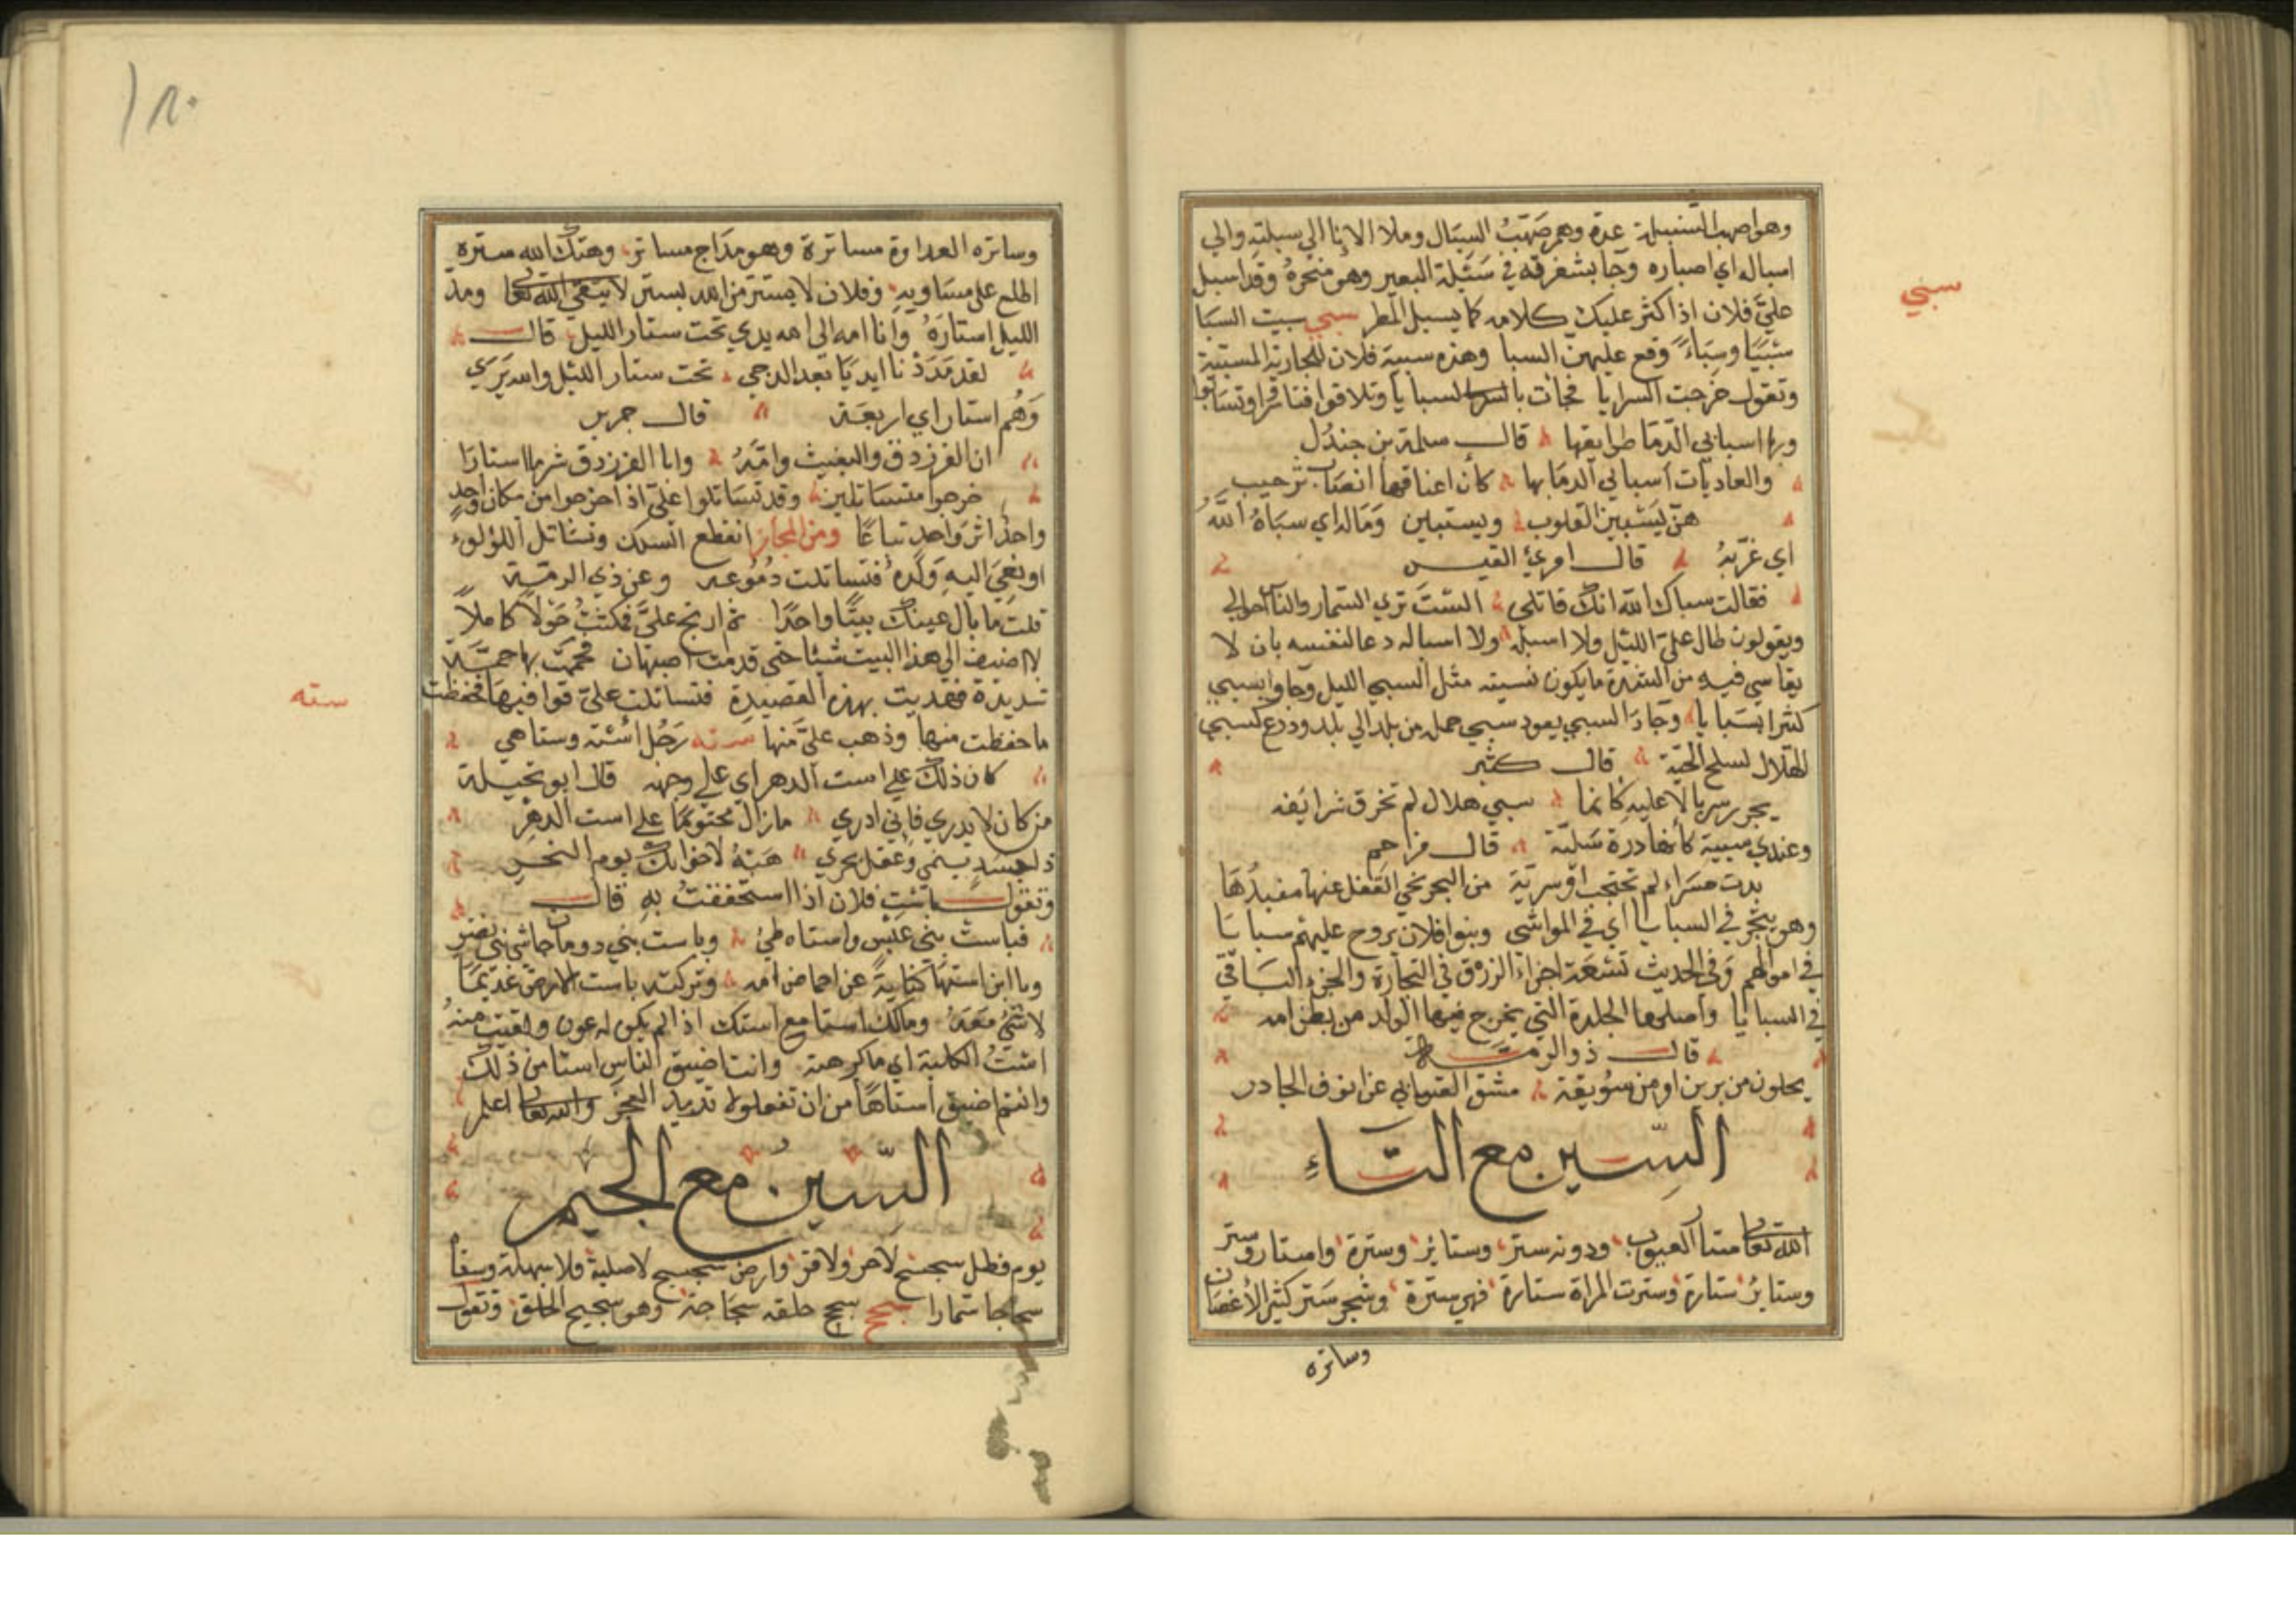 وهو اصهب السبلة عدوّ وهم صهب السبال وملأ الاناء الي سبلته والي
اسباله اي اصباره وجا بشفرقه في سبلة البعير وهو منحره وقد اسبل
عليّ فلان اذا اكثر عليك كلامه كما يسبل المطر سبي سبيت السبا
سبيًا وسباءً وقع عليهن السبا وهذه سبية فلان للجارية المسبية
وتقول خرجت السرايا فجاءت بالسبايا وتلاقوا فتاسروا وتسابوا
وبها اسابي الدما طرايقها قال سلمة بن جندل
والعاديات اسابي الدما بها كان اعناقها انصاب ترجيب
هن يسبين القلوب ويستبين وماله اي سباه الله
اي غربه قال امرئ القيس
فقالت سباك الله انك قاتلي الست تري السمار والناس احوالي
ويقولون طال عليّ الليل ولا اسبله ولا اسباله دعا لنفسه بان لا
يقاسي فيه من الشدة ما يكون بسببه مثل السبي الليل وجاوا بسبي
كثير بسبايا وجاد السبي يعود سبي حمله من بلد الي بلد ودرع كسبي
الهلال لسلخ الحية قال كثير
يجرر سربالا عليه كانما سبي هلال لم تخرق شرانقه
وعندي سبية كانها درة سلية قال مزاحم
بدت حسراء لم تحتجب او سرية من البحر نحي القفل عنها مفيدها
وهو يتجر في السبايا اي في المواشي وبنوا فلان تروح عليهم سبايا
في اموالهم وفي الحديث تسعة اجزاء الرزق في التجارة والجزء الباقي
في السبايا واصلها الجلدة التي يخرج فيها الولد من بطن امه
قال ذو الرمة
يحلون من يبرين او من سويقة مشق السوابي عن انوف الجادر
السين مع التاء
الله تعالى ستار العيوب ودونه ستر وستاير وسترة واستار وستر
وستاير ستارة وسترت المراة ستارة فهي مسترة وشجر ستر كثير الاغصان
وساتره
سبي
وساتره العداوة مساترة وهو مداج مساتر وهتك الله ستره
اطلع على مساويه وفلان لا يستتر من الله بستر لا يتقي الله تعالى ومد
الليل استاره وانا امه الى الله يدي تحت ستار الليل قال
لقد مددنا ايديا بعد الدجي تحت ستار الليل والله يري
وهم استار اي اربعة قال جرير
ان الفرزدق والبعيث وامه وابا الفرزدق شر ما استارا
خرجوا متساتلين وقد تساتلوا عليّ اذا خرجوا من مكان واحد
واحدا اثر واحد تباعا ومن المجاز انقطع السلك وتساتل اللؤلوء
او نعي اليه ولده فتساتلت دموعه وعن ذي الرمة
قلت ما بال عينك بيتا واحدا ثم ارتج عليّ فمكثت حولا كاملا
لا اضيف الي هذا البيت شيئا حتى قدمت اصبهان فحممت بها حمّى
شديدة فهديت بهذه القصيدة فتساتلت علي قوافيها فحفظت
ما حفظت منها وذهب عليّ منها سته رجل استه وستاهي
كان ذلك علي است الدهر اي علي وجهه قال ابو نخيلة
من كان لا يدري فاني ادري مازال مجنونا علي است الدهر
ذا جسد ينمي وعقل يحري هبه لاخوانك يوم النحر
وتقول باست فلان اذا استخففت به قال
فباست بني عبس واستاه طئ وباست بني دودان حاشى بني نصر
ويا ابن استها كناية عن احماض امه وتركته باست الارض عديما
لا شئ معه ومالك است مع استك اذا لم يكن له عون ولقيت منه
است الكلبة اي ما كرهته وانت اضيق الناس استا من ذلك
وانتم اضيق استاها من ان تفعلوه تريد العجز والله تعالى اعلم
السين مع الجيم
يوم وظل سجسج لا حر ولا قر وارض سجسج لا صلبة ولا سهلة وسقا
سجاجا سمارا سجح سجح خلقه سجاحة وهو سجيح الخلق وتقول
سته